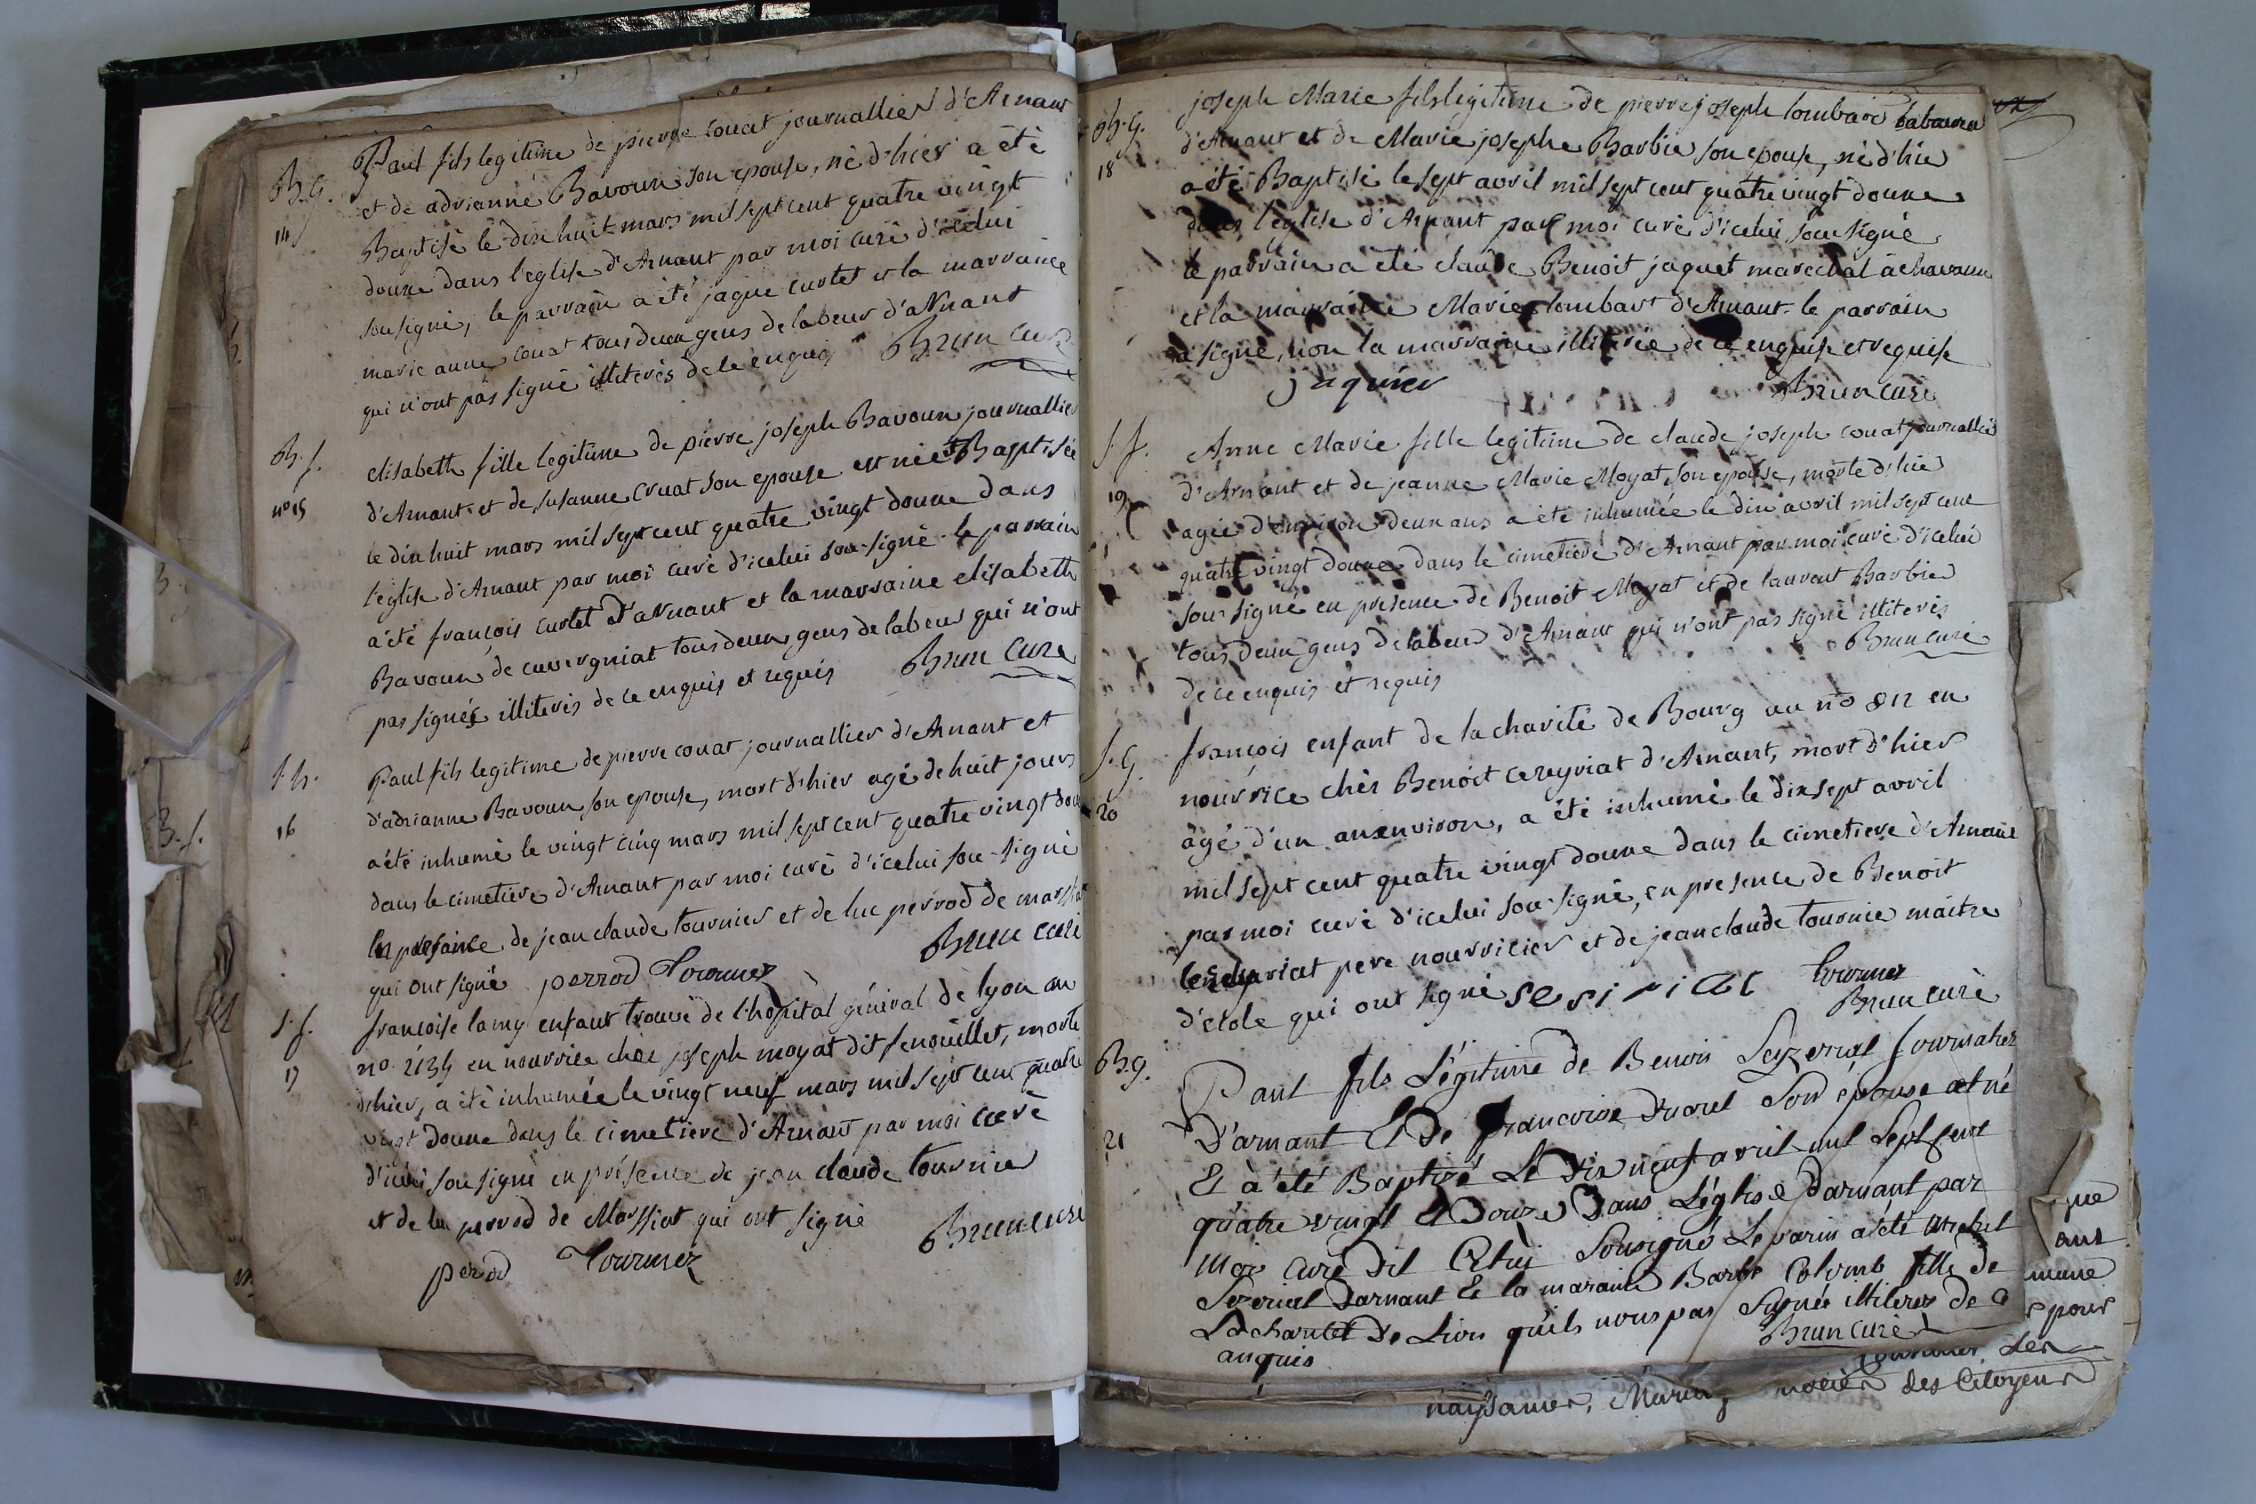 B.G.
14
Paul fils legitime de pierre couat journallier d'Arnant
et de adrianne Bavoux son epouse, né d'hier a été
Baptisé le dix huit mars mil sept cent quatre vingt
douze dans l'eglise d'Arnant par moi curé d'icelui
sousigné, le parrain a été jaque curtet et la marraine
marie anne couat tous deux gens de labeur d'arnant
qui n'ont pas signé illiterés de ce enquis Brun curé
B.f.
n° 15
elisabeth fille legitime de pierre joseph Bavoux journallier
d'Arnant et de susanne couat son epouse est née et Baptisée
le dix huit mars mil sept cent quatre vingt douze dans
l'eglise d'Arnant par moi curé d'icelui sou-signé le parrain
a été françois curtet d'arnant et la marraine elisabeth
Bavoux de cuvergniat tous deux gens de labeur qui n'ont
pas signés illiterés de ce enquis et requis Brun curé
16
Paul fils legitime de pierre couat journallier d'Arnant et
d'adrianne Bavoux son epouse, mort d'hier agé de huit jours
a été inhumé le vingt cinq mars mil sept cent quatre vingt douze
dans le cimetiere d'Arnant par moi curé d'icelui sou-signé
en presance de jean claude tournier et de luc perrod de marssiat
qui ont signé perrod Tournier Brun curé
S.f.
17
françoise lamy enfant trouvé de l'hopital géneral de lyon au
n° 2134 en nourrice chéz joseph moyat dit fenouillet, morte
d'hier, a été inhumée le vingt neuf mars mil sept cent quatre
vingt douze dans le cimetiere d'Arnant par moi curé
d'icelui sousigné en présence de jean claude tournier
et de luc perrod de Marssiat qui ont signé Brun curé
perrod Tournier
B.G.
18
joseph Marie fils legitime de pierre joseph lombard
d'Arnant et de Marie josephe Barbier son epouse, né d'hier
a été Baptisé le sept avril mil sept cent quatre vingt douze
dans l'eglise d'Arnant par moi curé d'icelui sousigné
le parrain a été claude Benoit jaquet marechal à chavanne
et la marraine Marie lombart d'Arnant le parrain
a signé, non la marraine illiterée de ce enquise et requise
Brun curé
S.f.
19
Anne Marie fille legitime de claude joseph couat journallier
d'Arnant et de jeanne Marie Moyat son epouse, morte d'hier
agée d'environ deux ans a été inhumée le dix avril mil sept cent
quatre vingt douze dans le cimetiere d'Arnant par moi curé d'icelui
sous signé en presence de Benoit Moyat et de laurent Barbier
tous deux gens de labeur d'Arnant qui n'ont pas signé illiterés
de ce enquis et requis Brun curé
S.G.
20
françois enfant de la charité de Bourg au n° 812 en
nourrice chés Benoit cereyriat d'Arnant, mort d'hier
agé d'un an environ, a été inhumé le dix sept avril
mil sept cent quatre vingt douze dans le cimetiere d'Arnant
par moi curé d'icelui sou-signé, en presence de Benoit
pere nourricier et de jean claude tournier maitre
d'ecole qui ont signé Tournier
Brun curé
B.g.
21
Paul fils Légitime de Benoit journalier
D'arnant Et De françoise son épouse est né
Et à été Baptizé Le Dix neuf avril mil Sept Cent
quatre vingt Et Douze Dans L'églis e Darnant par
Moi Curé Sousigné Le parin a été Michel
Darnant Et la maraine Barbe Colomb fille de
La charité De Lion quils nous pas Signés illiteres de ce
anquis Brun curé
que
ant
pour
Naissances, Mariages des Citoyens